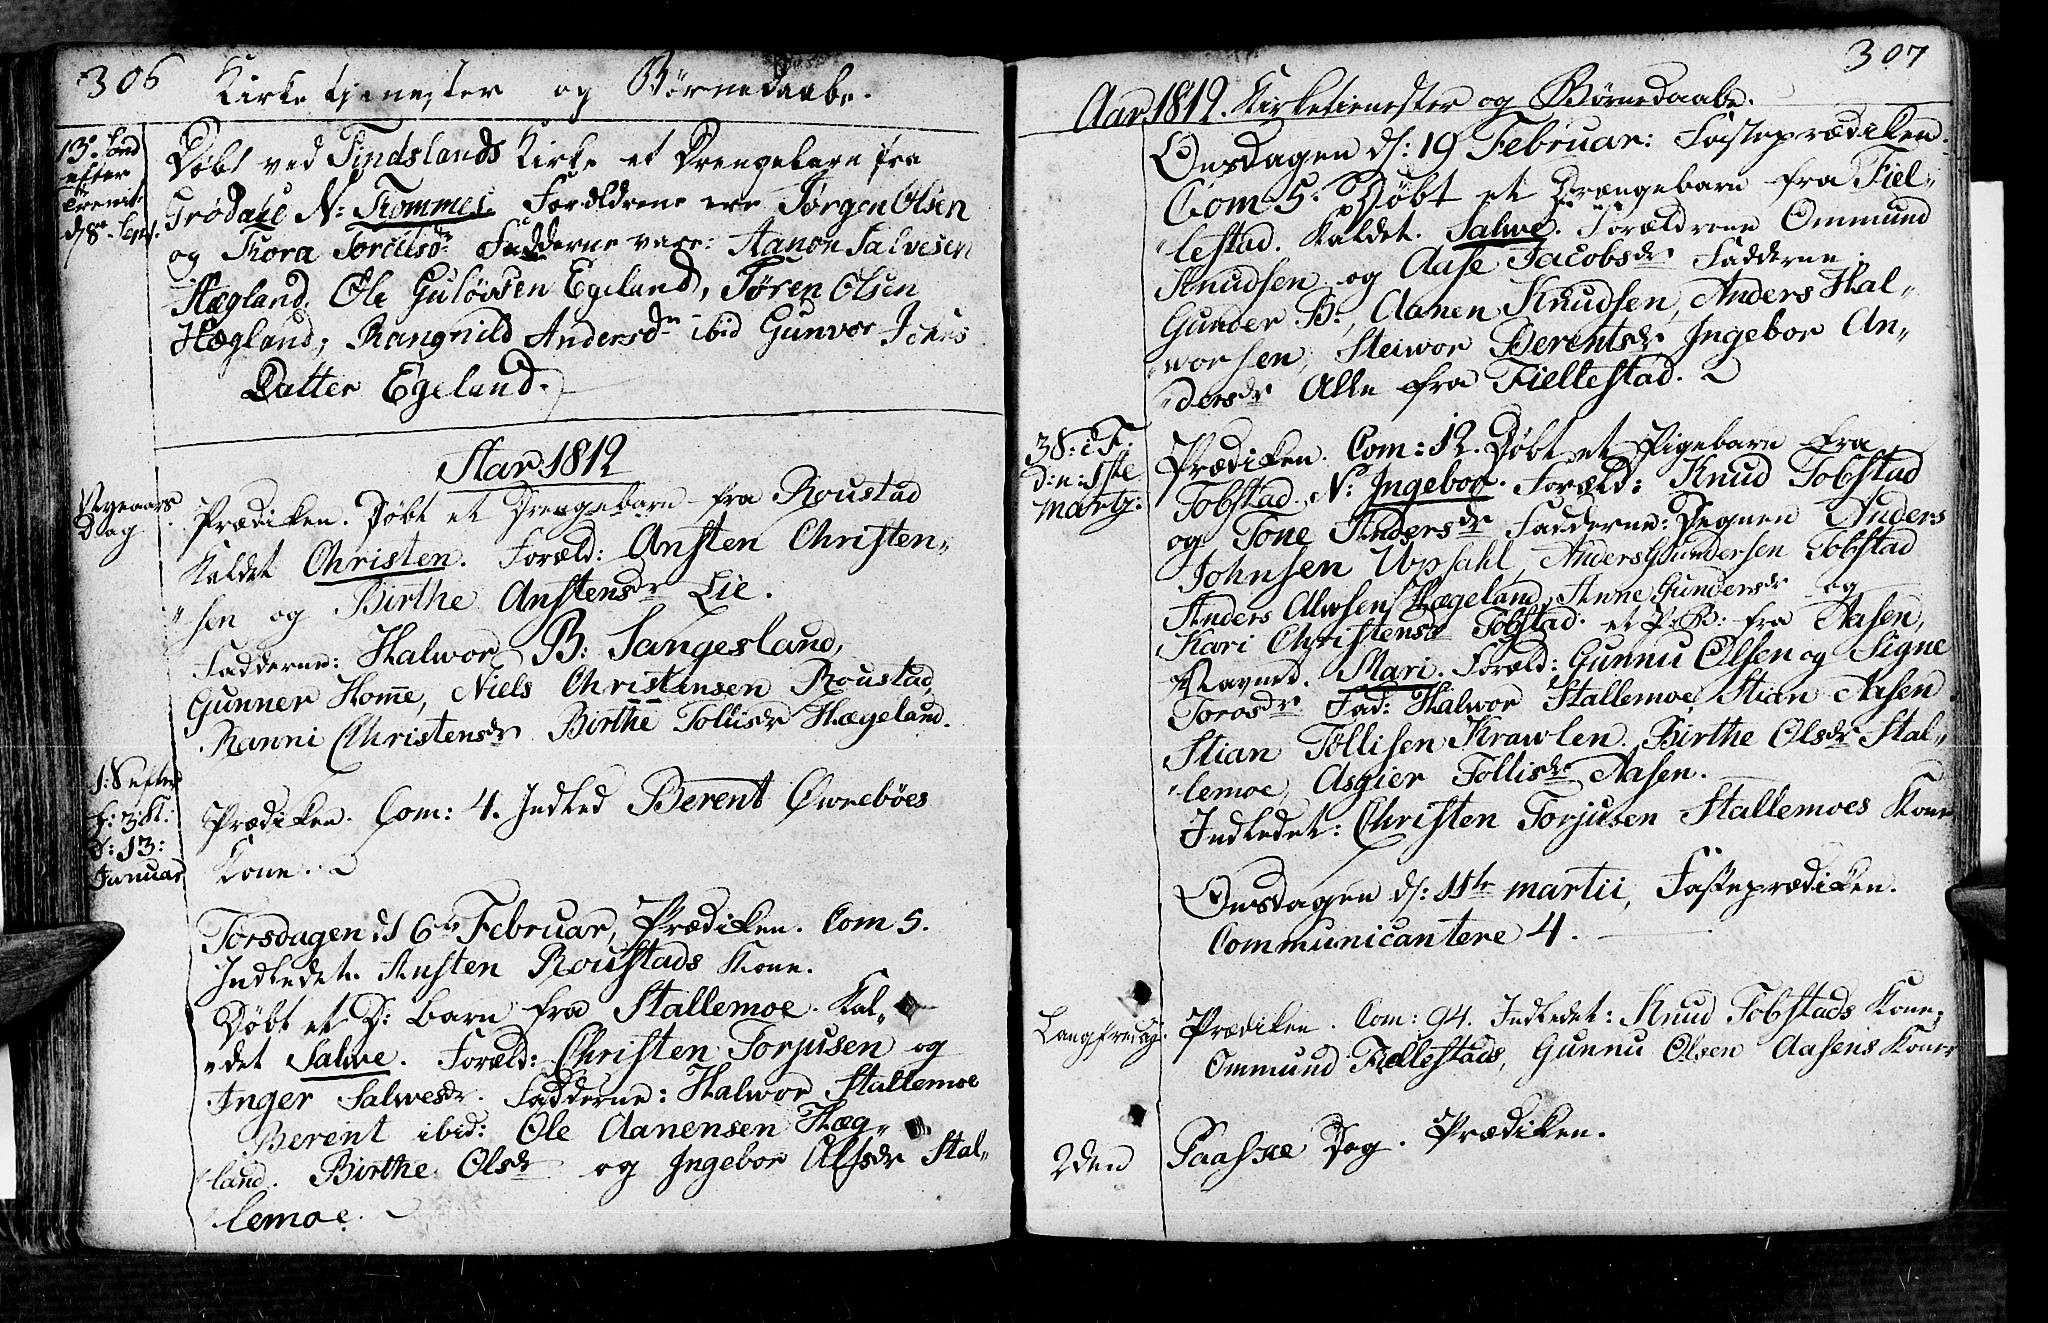 306 Kirketjenester og Børnedaabe.
13de Sønd
efter
Trinit.
d. 8de Sept.
Døbt ved Findslands Kirke et Drengebarn fra
Trødahl N: Tommes. Forældrene ere Jørgen Olsen
og Thora Torkilsdr Fadderne vare: Aanon Salvesen
Hægland. Ole Guløvsen Egeland, Søren Olsen
Hægland; Rangnild Andersdr ibid Gunvor Jens
Datter Egeland.
Aar 1812
Nyeaars
Dag
Prædiken. Døbt et Drengebarn fra Roustad
Kaldet Christen. Foræld: Ansten Christen„
„sen og Birthe Anstensdr Lie.
Fadderne: Halwor B: Sangesland,
Gunner Home, Niels Christensen Roustad,
Ranni Christensdr Birthe Tollisdr Hægeland.
1: S efter
h: 3: K:
d: 13:
Januar
Prædiken. Com: 4. Indled Berent Øwrebøes
Kone.
Torsdagen d 6te Februar, Prædiken. Com 5.
Indledet. Ansten Roustads Kone.
Døbt et D: Barn fra Stallemoe. Kal„
„det Salwe. Foræld: Christen Torjusen og
Inger Salwesdr. Fadderne: Halwor Stallemoe
Berent ibid: Ole Aanensen Hæg„
„land. Birthe Olsdr og Ingebor Alfsdr Stal„
„lemoe.
307
Aar 1812. Kirketienester og Børnedaabe.
Onsdagen d: 19 Februar: Fasteprædiken.
Com 5. Døbt et Drængebarn fra Fiel„
„lestad. Kaldet. Salwe. Forældrene Ommund
Knudsen og Aase Jacobsdr Fadderne:
Gunder B:, Aanen Knudsen, Anders Hal„
„worsen, Steiwor Berentsdr Ingebor An„
„dersdr Alle fra Fiellestad.
3 S: i F:
d: n: 1ste
Martz:
Prædiken. Com: 12. Døbt et Pigebarn fra
Tobstad. N: Ingebor. Foræld: Knud Tobstad
og Tone Andersdr Fadderne: Degnen Anders
Johnsen Upsahl, Anders Gundersen Tobstad
Anders Alwsen Hægeland, Anne Gundersdr og
Kari Christensdr Tobstad. et P: B: fra Aasen,
Navnet. Mari. Foræld: Gunnu Olsen og Signe
Torosdr Fad: Halwor Stallemoe, Stian Aasen
Stian Tollisen Krawlen. Birthe Olsdr Stal„
„lemoe, Asgier Tollisdr Aasen.
Indledet: Christen Torjusen Stallemoes Kone
Onsdagen d: 11te martii, Fasteprædiken.
Communicantere 4.
Langfredag:
Prædiken. Com: 94. Indledet: Knud Tobstads Kone,
Ommund Fiellestads, Gunnu Olsen Aasens Koner
2den Paaske Dag. Prædiken.